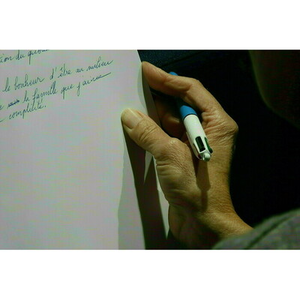 le bonheur d'être au milieu
la famille que j'avais
complétée.